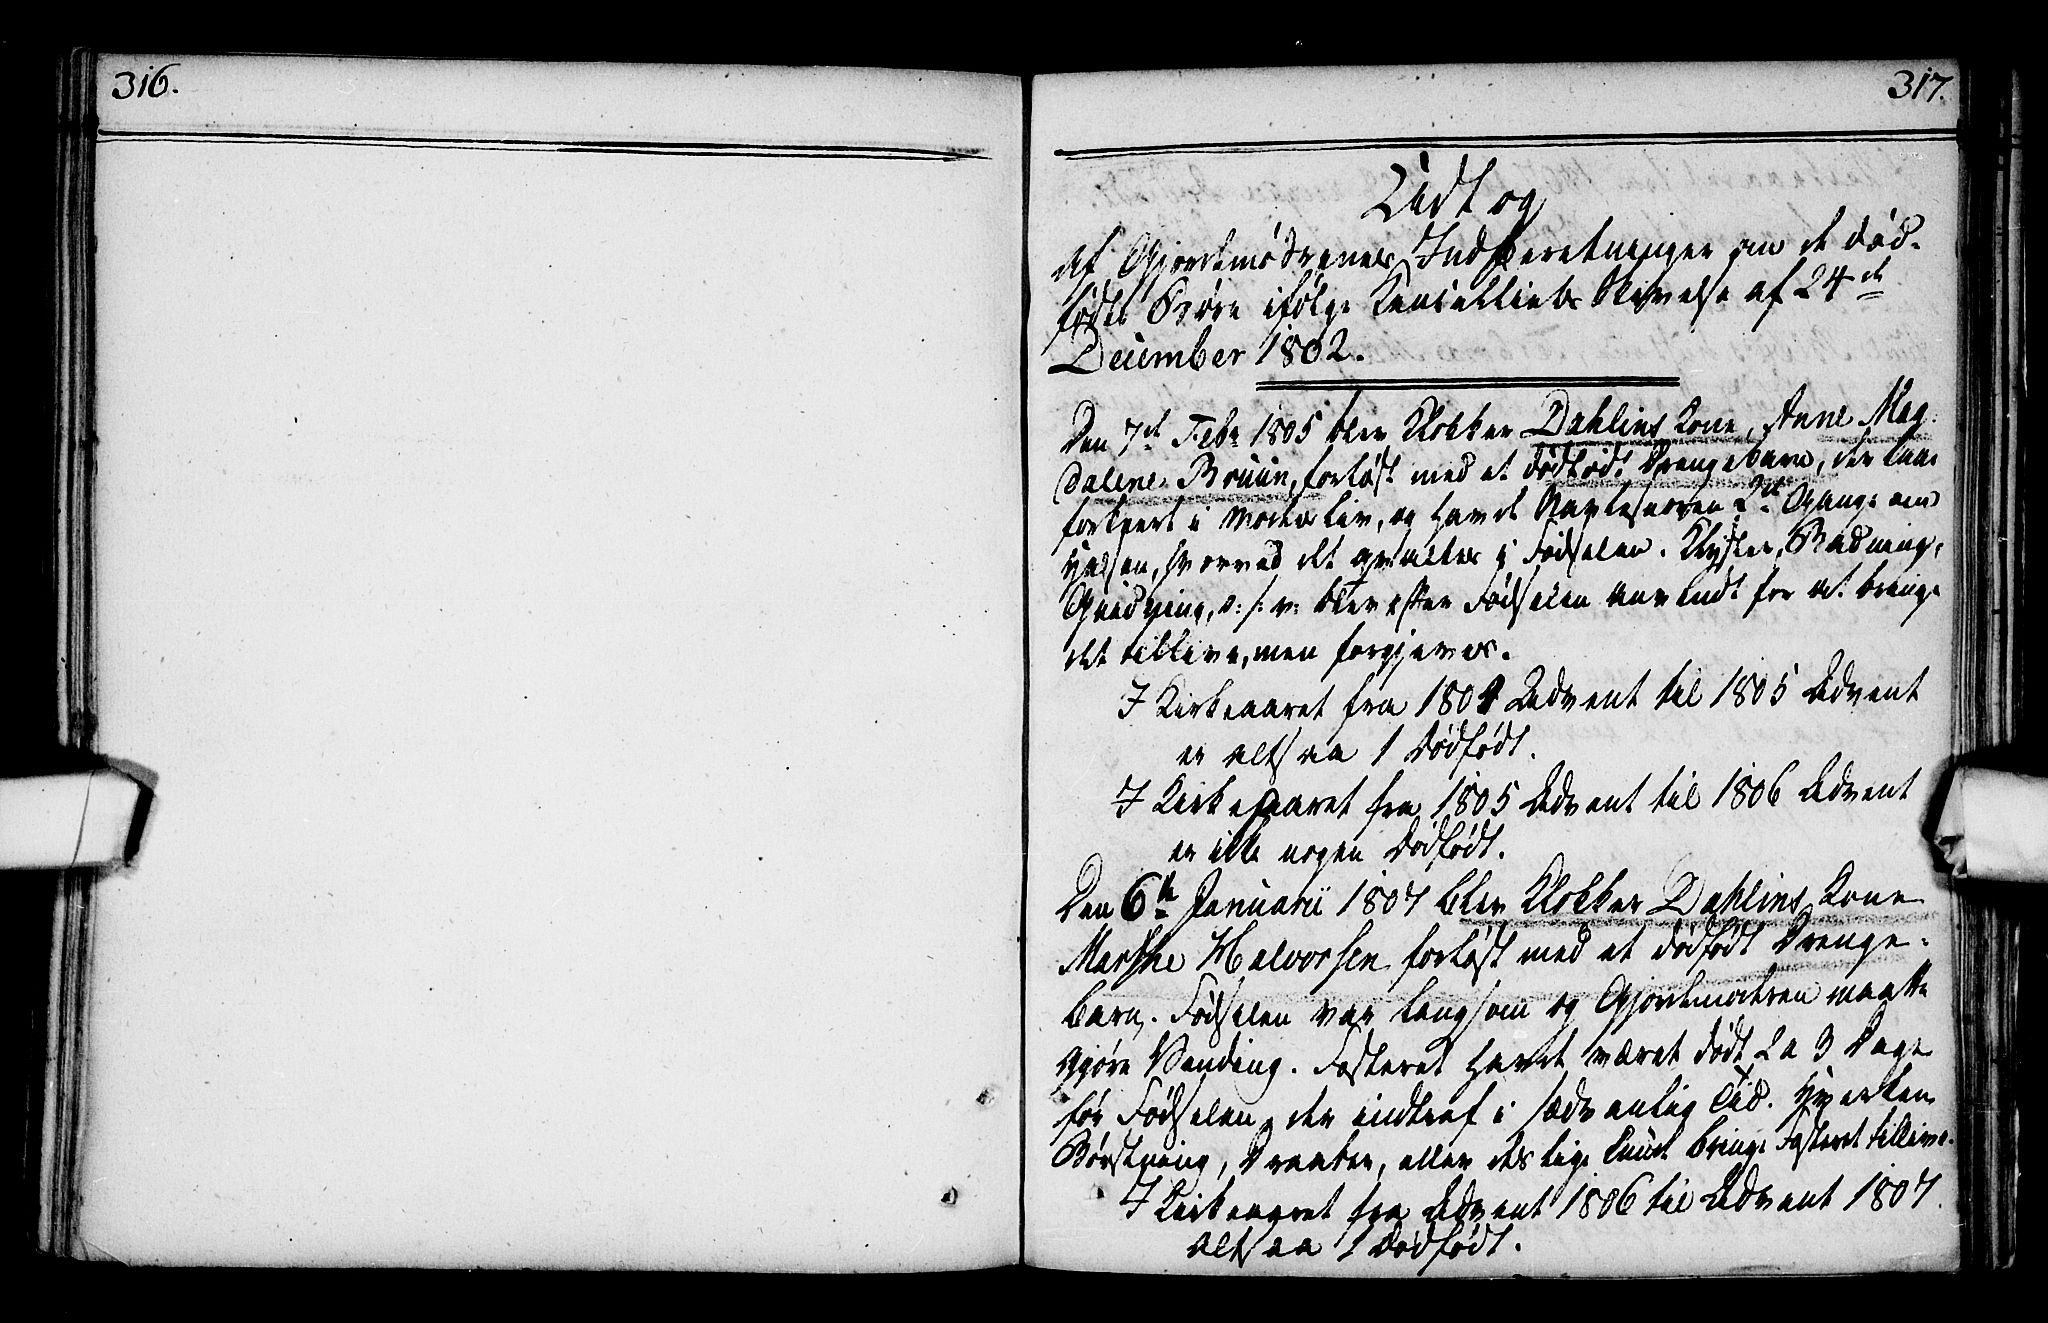 316.
317.
Udtog
af Gjordemødrenes Indberetninger om de død-
fødte Børn ifølge Cancelliets Skrivelse af 24de
December 1802.
Den 7de Febr 1805 blev Klokker Dahlins Kone, Anne Mag-
dalene Bruun, forløst med et dødfødt Drengebarn, der laae
forkeert i Moders Liv, og havde Navlesnoren 2de Gange om
Halsen, hvorved det qvaltes i Fødselen. Klyster, Badning,
Gnidning, o: s: v: blev efter Fødselen anvendt for at bringe
det tillive, men forgjeves.
I Kirkeaaret fra 1804 Advent til 1805 Advent
er altsaa 1 Dødfødt.
I Kirkeaaret fra 1805 Advent til 1806 Advent
er ikke nogen Dødfødt.
Den 6te Januarii 1807 blev Klokker Dahlins Kone
Marthe Halvorsen forløst med et dødfødt Drenge-
barn. Fødselen var langsom og Gjordemoderen maatte
gjøre Vending. Fosteret havde været dødt 2 a 3 Dage
før Fødselen, der indtraf i sædvanlig Tid. Hverken
Børstning, Draaber, eller deslige kunde bringe Fosteret tillive.
I Kirkeaaret fra Advent 1806 til Advent 1807.
altsaa 1 Dødfødt.